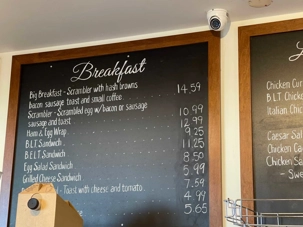 Breakfast
Big Breakfast - Scrambler with hash browns
bacon sausage toast and small coffee 14.59
Scrambler - Scrambled egg w/bacon or sausage
sausage and toast 10.99
Ham & Egg Wrap 12.99
B.L.T. Sandwich 9.25
B.E.L.T. Sandwich 11.25
Egg Salad Sandwich 8.50
Grilled Cheese Sandwich 5.99
7.59
- Toast with cheese and tomato 4.99
5.65
Chicken
B.L.T Chick
Italian Chic
Caesar Sal
Chicken Ca
Chicken Sal
- Swe